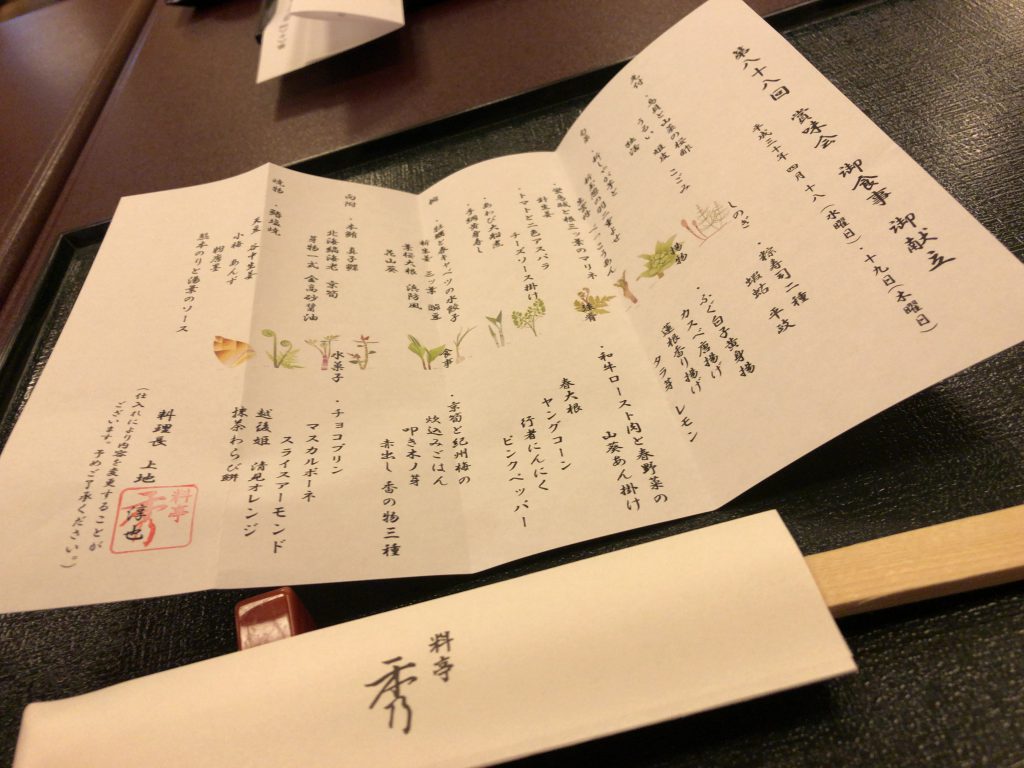 第八十八回 賞味会 御食事 御献立
平成三十年 四月十八(水曜日)・十九日(木曜日)
先付
・鳥貝と山菜の桜酢
うるい 姫皮 こごみ
しのぎ
・粽寿司二種
蝦蛄 平政
揚物
・ふぐ白子黄身揚
カスベ唐揚げ
蓮根香り揚げ
タラ芽 レモン
針生姜
・トマトと二色アスパラ
チーズソース掛け
・あわび大船煮
・手綱黄身寿し
・和牛ロースト肉と春野菜の
山葵あん掛け
春大根
ヤングコーン
行者にんにく
ピンクペッパー
椀
・牡蠣と春キャベツの水餃子
新生姜 三ッ葉
向附
・本鮪 真子鰈
北海縞海老 京筍
芽物一式 金高砂醤油
葉桜大根 浜防風
花山葵
食事
・京筍と紀州梅の
炊込みごはん
叩き木ノ芽
赤出し 香の物三種
焼物
天豆 谷中生姜
小梅 あんず
熊本のりと湯葉のソース
水菓子
・チョコプリン
マスカルポーネ
スライスアーモンド
越後姫 清見オレンジ
抹茶わらび餅
料理長 上地 淳也
料亭
秀
(仕入れにより内容を変更することが
ございます。予めご了承ください。)
料亭
秀